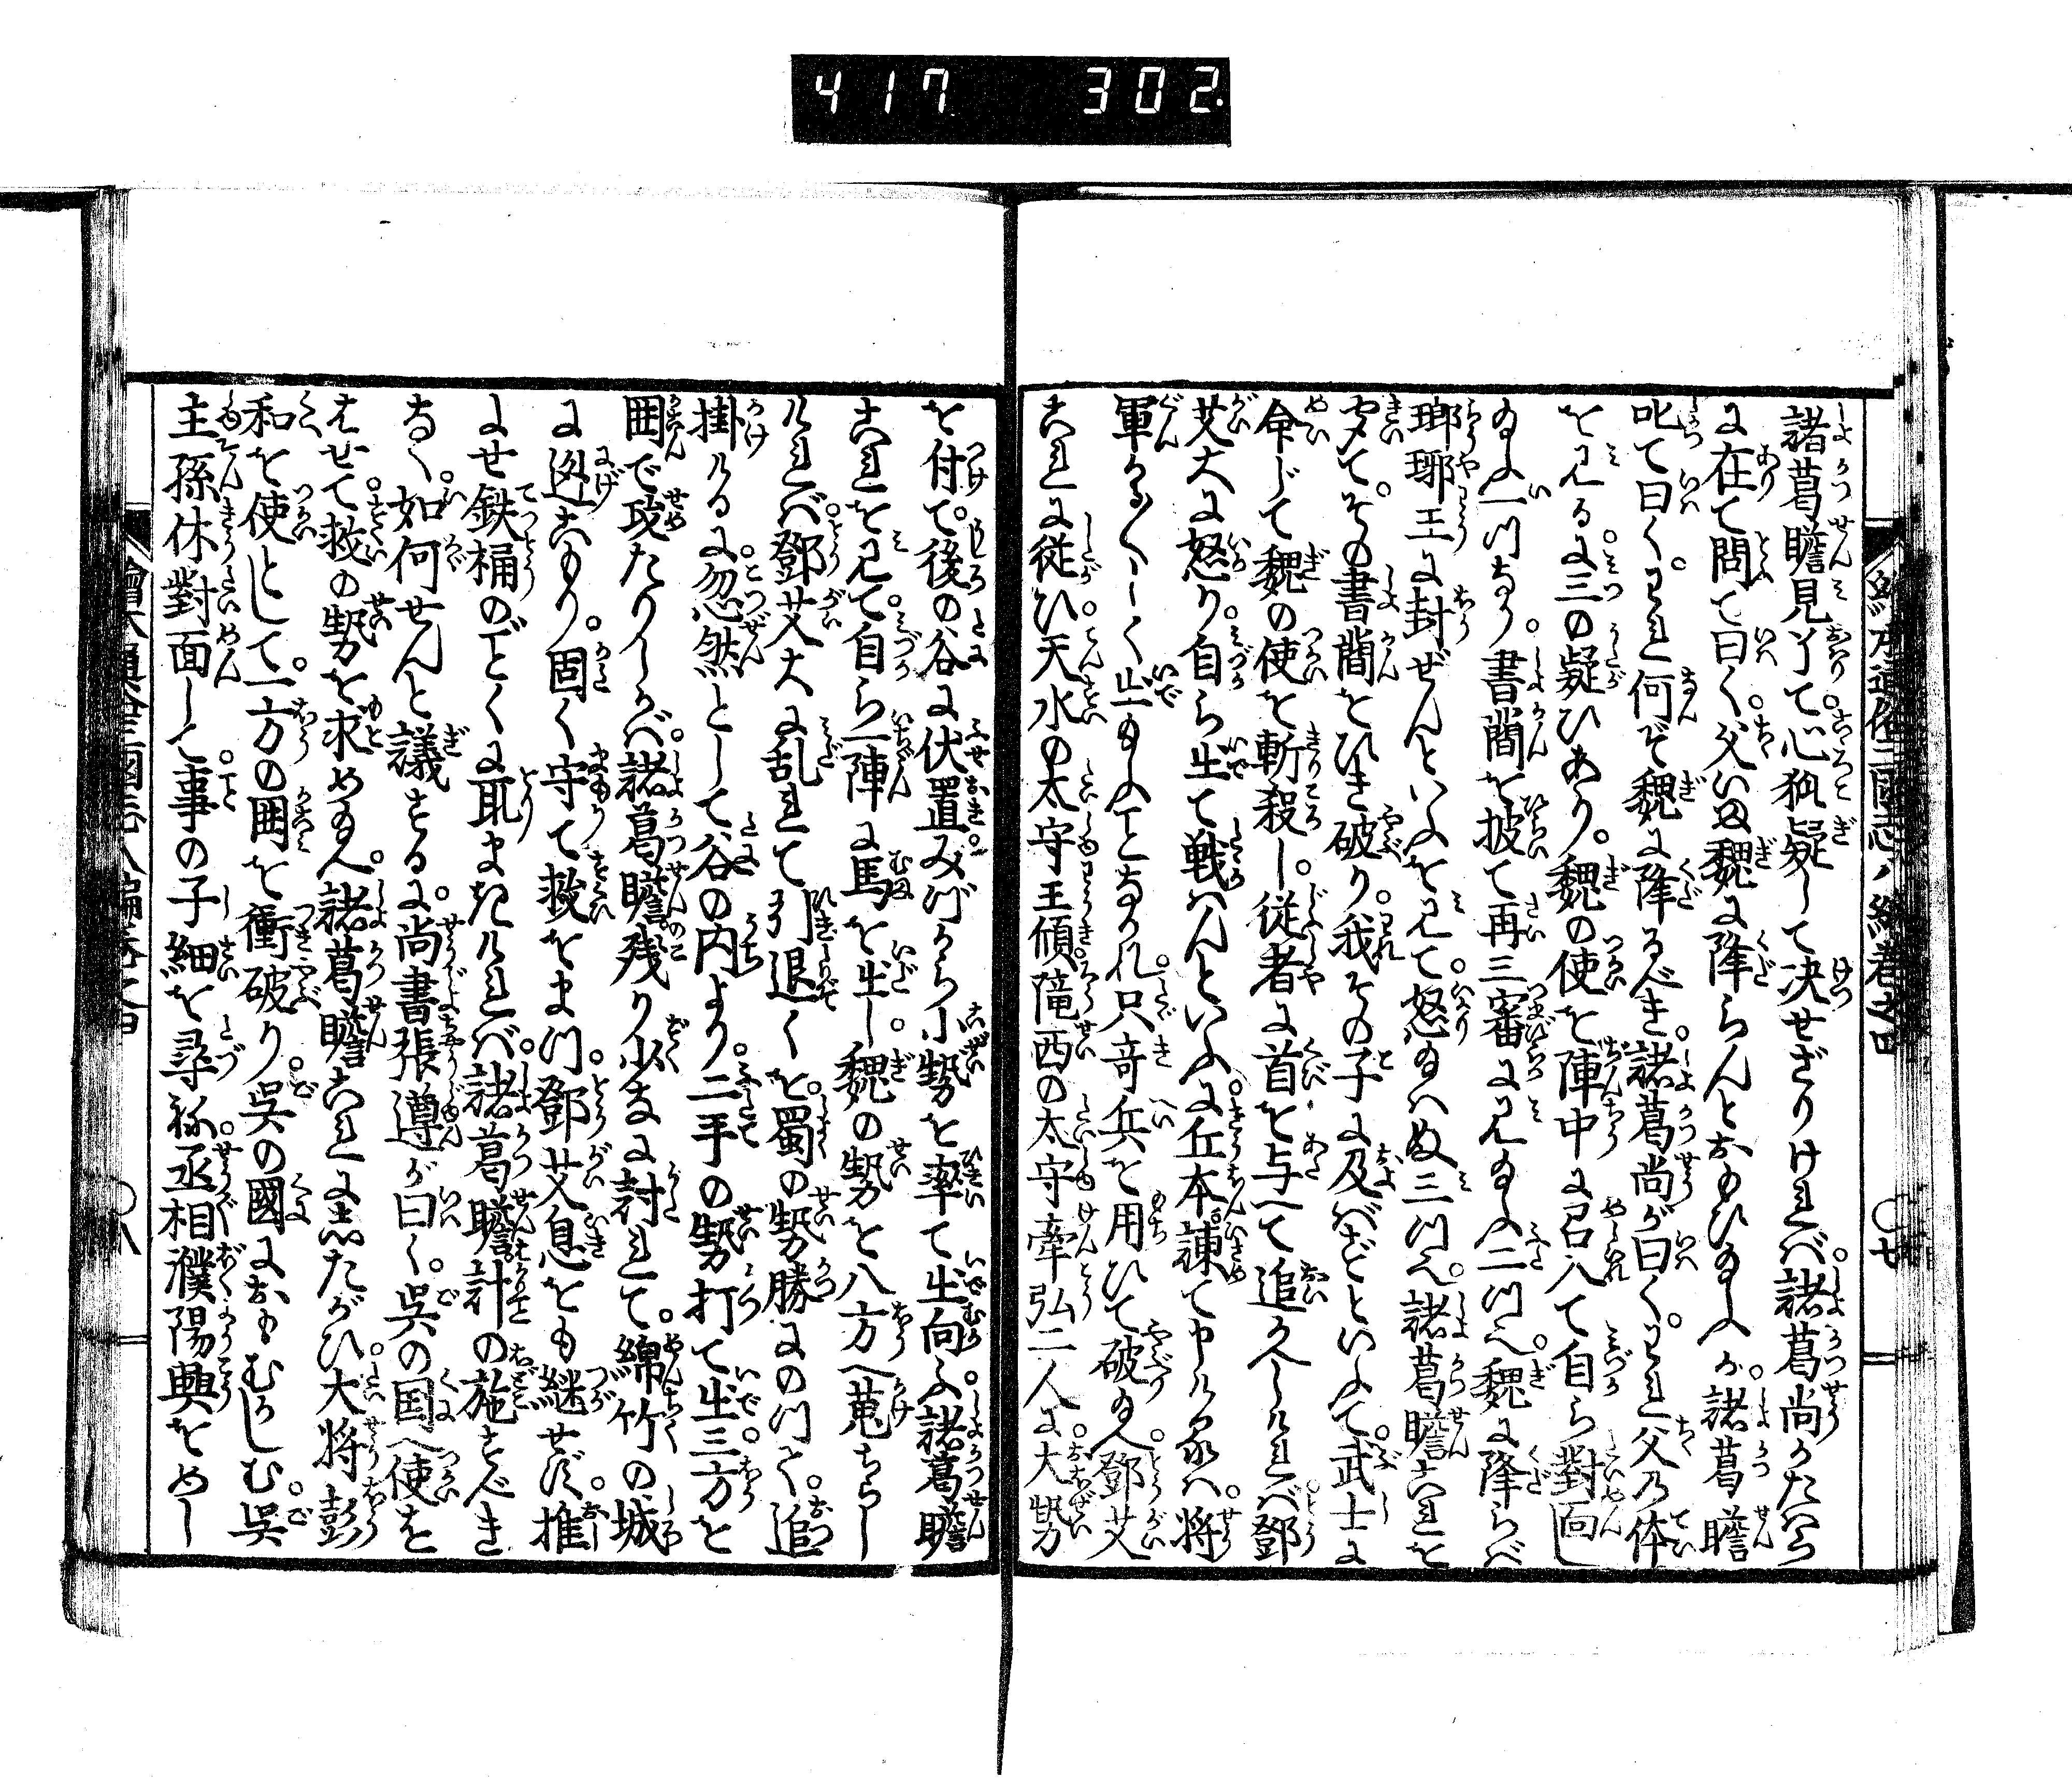 417 302.
諸葛瞻見了て心狐疑して决せざりければ。諸葛尚かたハら
に在て問て曰く。父いま魏に降らんとおもひ玉ふか。諸葛瞻
叱て曰く。われ何ぞ魏に降るべき。諸葛尚が曰く。われ父の体
を見るに三の疑ひあり。魏の使を陣中に召入て自ら對面し
玉ふ一ツなり。書簡を披て再三審に見玉ふ二ツ也。魏に降らば
瑯琊王に封ぜんといふを見て。怒玉ハぬ三ツ也。諸葛瞻これを
聞て。その書簡をひき破り。我その子に及ばずといふて。武士に
命じて魏の使を斬殺し。従者に首を与へて追久しければ鄧
艾大に怒り。自ら出て戦ハんといふに。丘本諌て申ける将
軍かる〱しく出玉ふことなかれ。只竒兵を用ひて破玉へ。鄧艾
これに従ひ。天水の太守王傾。隴西の太守牽弘二人に。大勢
を付て。後の谷に伏置みづから小勢を率て出向ふ。諸葛瞻
これを見て。自ら一陣に馬を出し。魏の勢を八方へ蒐ちらし
ければ。鄧艾大に乱れて引退くを。蜀の勢勝にのつて。追
掛けるに。忽然として谷の内より。二手の勢打て出。三方を
囲で攻たりしかば。諸葛瞻残り少なに討れて。綿竹の城
に迯こもり。固く守て救をまつ。鄧艾息をも継せず。推
よせ鉄桶のごとくに取まきければ。諸葛瞻計の施すべき
なく。如何せんと議するに。尚書張遵が曰く。呉の国へ使を
はせて。救の勢を求め玉へ。諸葛瞻これに志たがひ。大将彭
和を使として。一方の囲を衝破り。呉の國におもむかしむ。呉
主孫休對面して。事の子細を尋ね。丞相濮陽興をめし